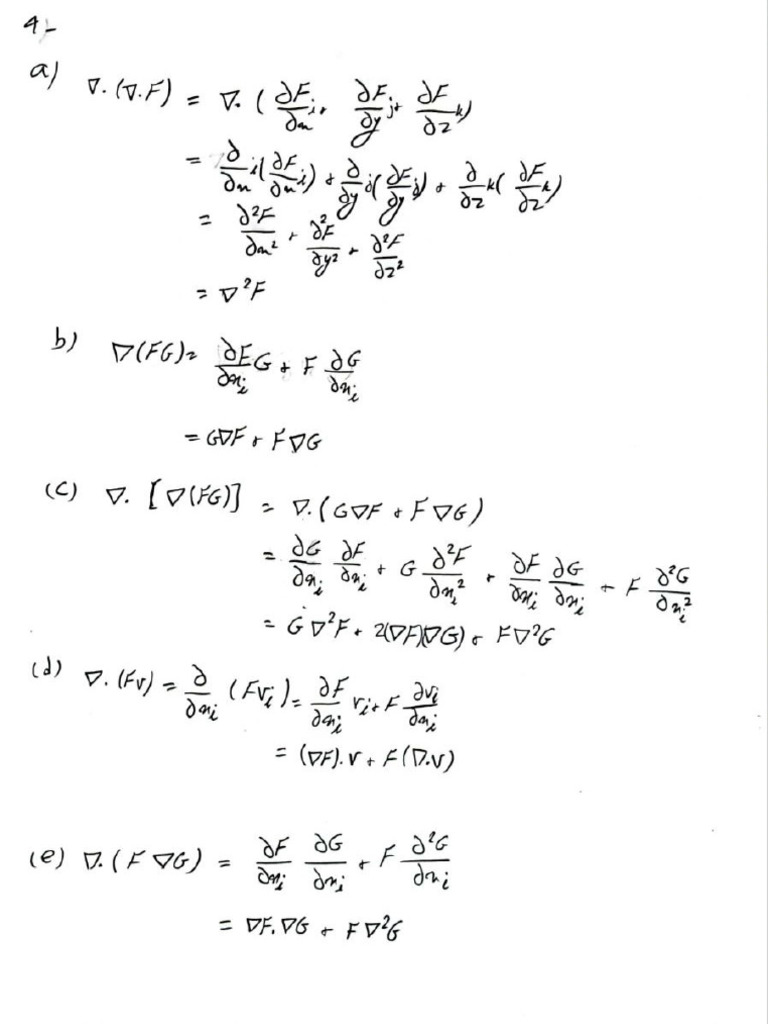 4-
a) ∇.(∇.F) = ∇. (∂F/∂x i + ∂F/∂y j + ∂F/∂z k)
= ∂/∂x i(∂F/∂x i) + ∂/∂y j(∂F/∂y j) + ∂/∂z k(∂F/∂z k)
= ∂²F/∂x² + ∂²F/∂y² + ∂²F/∂z²
= ∇²F
b) ∇(FG) = ∂F/∂xᵢ G + F ∂G/∂xᵢ
= G∇F + F∇G
(c) ∇. [∇(FG)] = ∇.(G∇F + F∇G)
= ∂G/∂xᵢ ∂F/∂xᵢ + G ∂²F/∂xᵢ² + ∂F/∂xᵢ ∂G/∂xᵢ + F ∂²G/∂xᵢ²
= G∇²F + 2(∇F)(∇G) + F∇²G
(d) ∇.(Fv) = ∂/∂xᵢ (Fvᵢ) = ∂F/∂xᵢ vᵢ + F ∂vᵢ/∂xᵢ
= (∇F).v + F(∇.v)
(e) ∇.(F∇G) = ∂F/∂xᵢ ∂G/∂xᵢ + F ∂²G/∂xᵢ
= ∇F.∇G + F∇²G